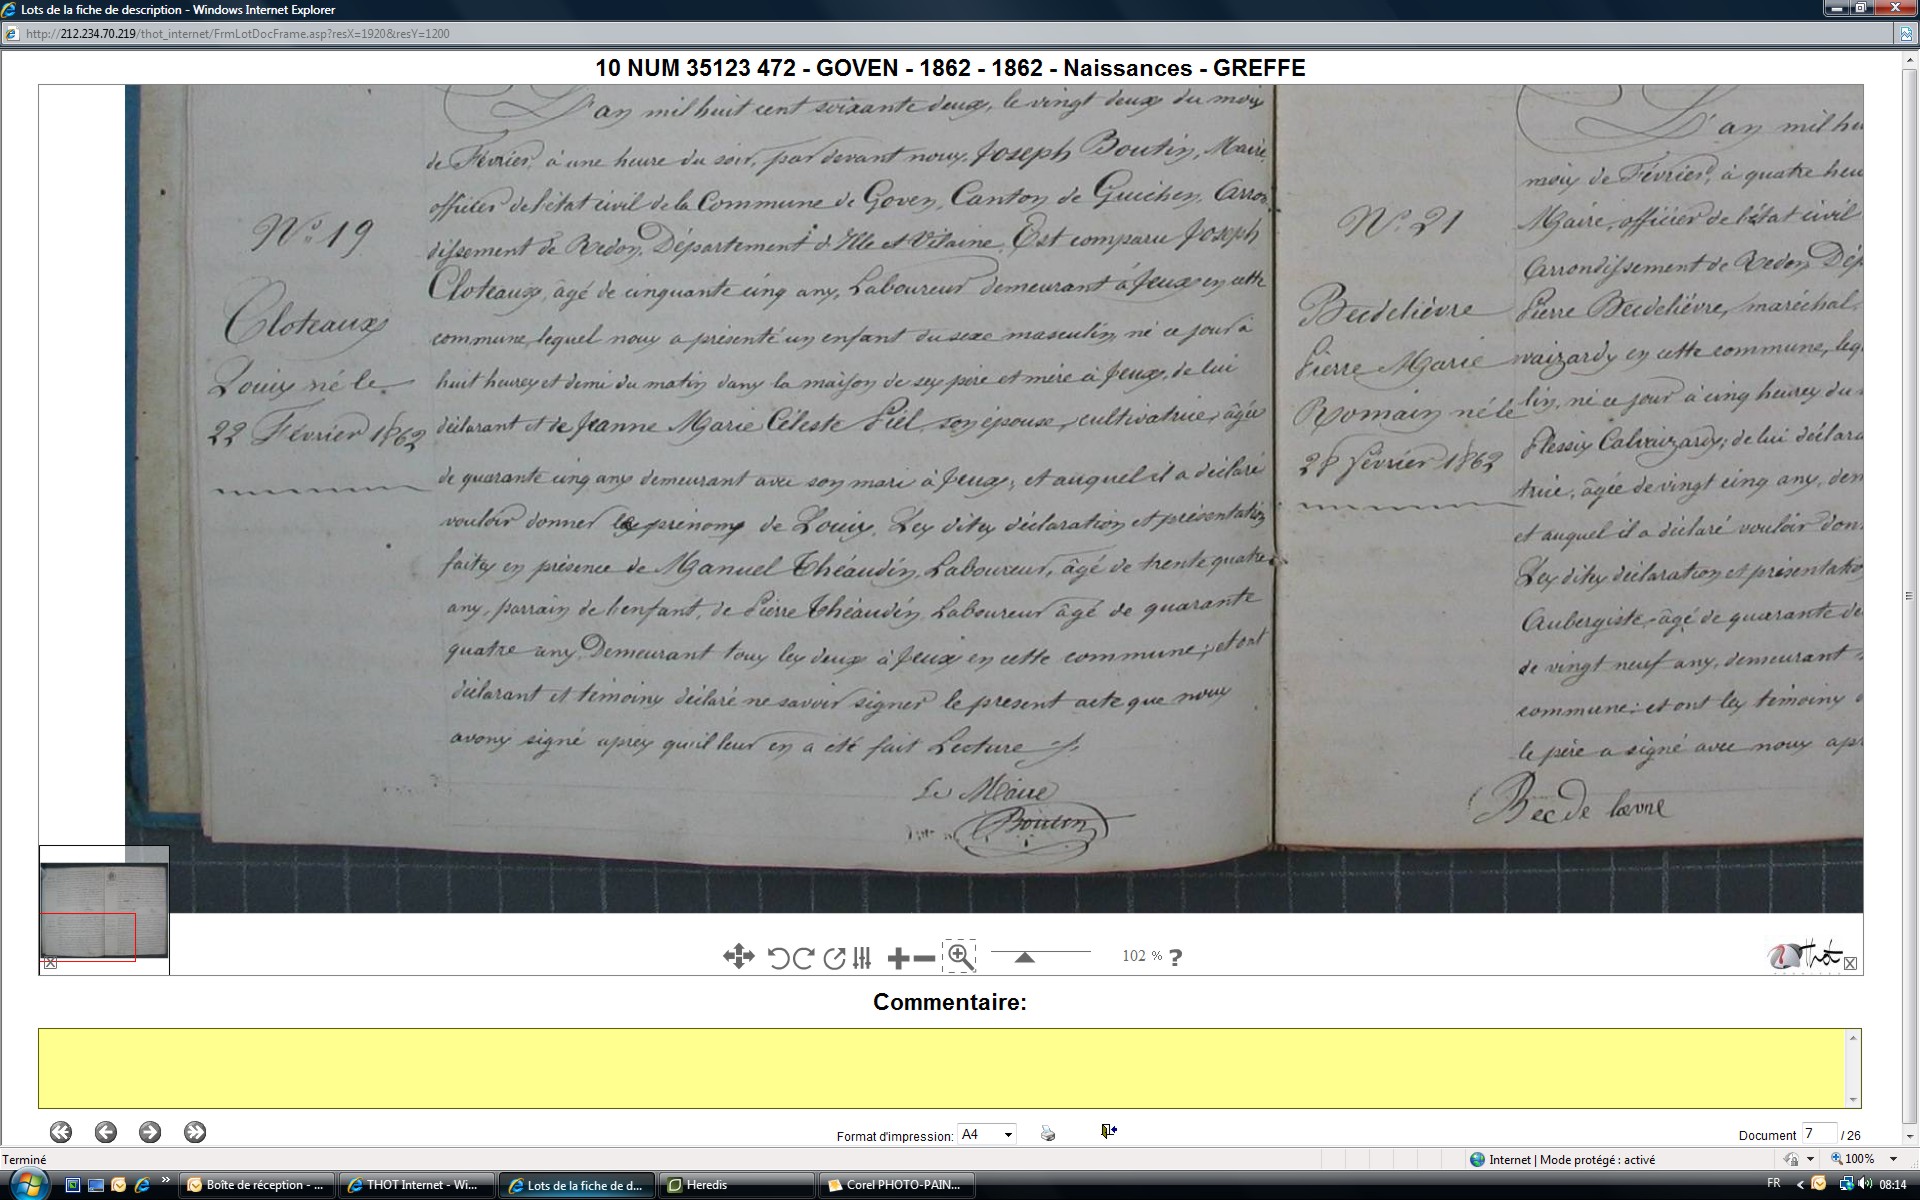 Lots de la fiche de description - Windows Internet Explorer
http://212.234.70.219/thot_internet/FrmLotDocFrame.asp?resX=1920&resY=1200
10 NUM 35123 472 - GOVEN - 1862 - 1862 - Naissances - GREFFE
N° 19
Cloteaux
Louis né le
22 Février 1862
L'an mil huit cent soixante deux, le vingt deux du mois
de Février, à une heure du soir, par devant nous, Joseph Boutin, Maire,
officier de l'état civil de la Commune de Goven, Canton de Guichen, Arron-
dissement de Redon, Département d'Ille et Vilaine, Est comparu Joseph
Cloteaux, âgé de cinquante cinq ans, Laboureur demeurant à Jeux en cette
commune, lequel nous a présenté un enfant du sexe masculin, né ce jour à
huit heures et demi du matin dans la maison de ses père et mère à Jeux, de lui
déclarant et de Jeanne Marie Céleste Piel son épouse, cultivatrice, âgée
de quarante cinq ans demeurant avec son mari à Jeux, et auquel il a déclaré
vouloir donner les prénoms de Louis. Les dites déclaration et présentation
faites en présence de Manuel Théaudin, Laboureur, âgé de trente quatre
ans, parrain de l'enfant, de Pierre Théaudin, Laboureur âgé de quarante
quatre ans, Demeurant tous les deux à Jeux en cette commune; et ont
déclarant et témoins déclaré ne savoir signer le present acte que nous
avons signé apres qu'il leur en a été fait Lecture
Le Maire
Boutin
N° 21
Becdelièvre
Pierre Marie
Romain né le
28 février 1862
L'an mil hu
mois de Février, à quatre heu
Maire, officier de l'état civil
Arrondissement de Redon, Dép
Pierre Becdelièvre, maréchal,
vaizards en cette commune, leq
lin, né ce jour à cinq heures du
Plessix Calvaizards; de lui déclara
trice, âgée de vingt cinq ans, dem
et auquel il a déclaré vouloir don
Les dites déclaration et présentatio
Aubergiste, âgé de quarante de
de vingt neuf ans, demeurant
commune; et ont les témoins
le père a signé avec nous apr
Bec De lievre
102 % ?
Thot
Commentaire:
Format d'impression: A4
Document 7 / 26
Terminé
Internet | Mode protégé : activé
100%
Boîte de réception - ...
THOT Internet - Wi...
Lots de la fiche de d...
Heredis
Corel PHOTO-PAIN...
FR
08:14